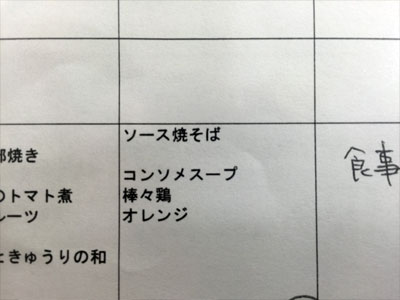 ソース焼そば
焼き
コンソメスープ
のトマト煮
棒々鶏
ルーツ
オレンジ
きゅうりの和
食事